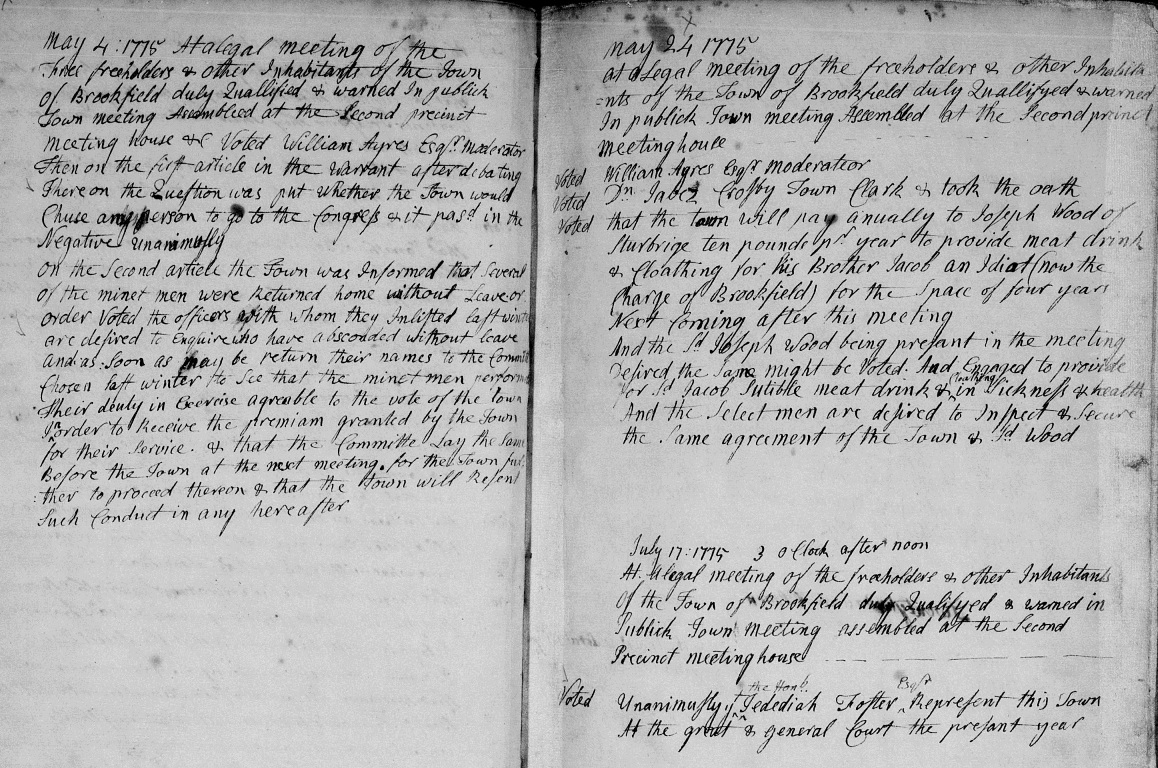 May 4: 1775 At a legal meeting of the
Three freeholders & other Inhabitants of the Town
of Brookfield duly Quallified & warned In publick
Town meeting Assembled at the Second precinct
meeting house &c Voted William Ayres Esqr. moderator
Then on the first article in the Warrant after debating
There on the Question was put whether the Town would
Chuse any person to go to the Congress & it pasd. in the
Negative unanimusly
on the Second article the Town was Informed that Several
of the minet men were Returned home without Leave or
order Voted the officers with whom they Inlisted last winter
are desired to Enquire who have absconded without leave
and as Soon as may be return their names to the Committe
Chosen last winter to See that the minet men perform
Their deuty in Exercise agreable to the vote of the Town
In order to Receive the premiam granted by the Town
for their Service. & that the Committe Lay the Same
Before the Town at the next meeting. for the Town fur
ther to proceed thereon & that the Town will Resent
Such Conduct in any hereafter
X
may 24 1775
at a Legal meeting of the freeholders & other Inhabita
=nts of the Town of Brookfield duly Quallifyed & warned
In publick Town meeting Assembled at the Second precinct
meetinghouse
Voted William Ayres Esqr. moderateor
Voted Dn. Jabez Crosby Town Clark & took the oath
Voted that the town will pay anually to Joseph Wood of
Sturbrige ten pounds pr. year to provide meat drink
& Cloathing for his Brother Jacob an Idiat (now the
Charge of Brookfield) for the Space of four years
Next Coming after this meeting
And the sd. Joseph Wood being presant in the meeting
Desired the Same might be Voted. And Engaged to provide
for sd. Jacob Sutible meat drink & Cloathing in Sickness & health
And the Select men are desired to Inspect & Secure
the Same agreement of the Town & sd. Wood
July 17: 1775 3 o Clock after noon
At A legal meeting of the freeholders & other Inhabitants
Of the Town of Brookfield duly Qualifyed & warned in
Publick Town meeting assembled at the Second
Precinct meetinghouse
Voted Unanimusly yt the Honl. Jedediah Foster Esqr. Represent this Town
At the great & general Court the presant year